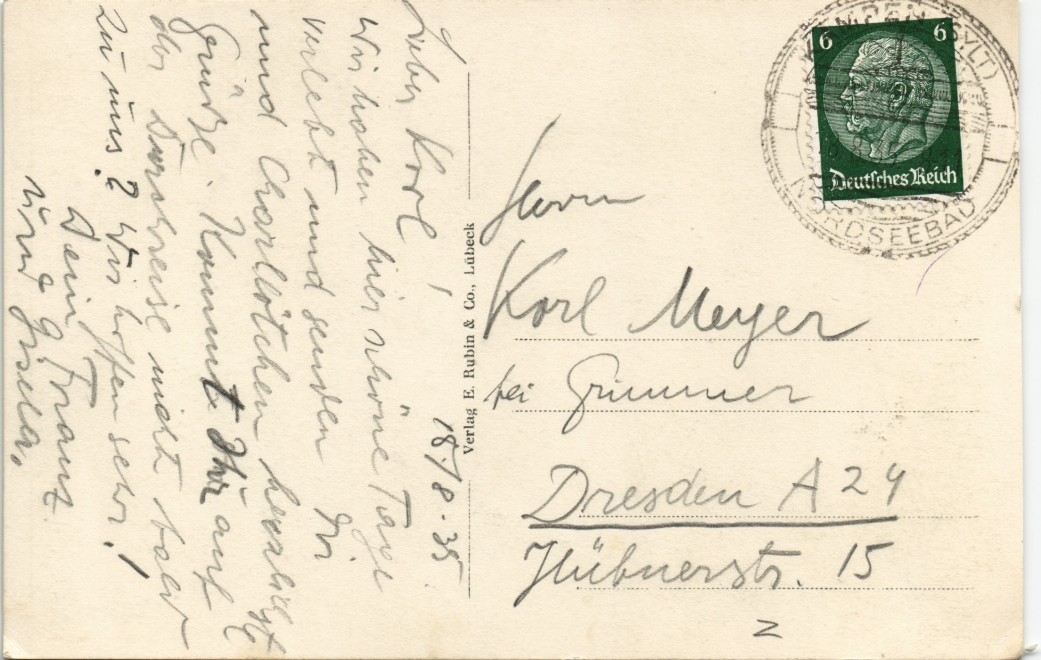 18./8.35
Lieber Karl!
Wir haben hier schöne Tage
verlebt und senden Dir
und Charlöttchen herzlichste
Grüße. Kommt Ihr auf
der Durchreise nicht bald
zu uns? Wir hoffen sehr!
Dein Franz
und Gisela.
Verlag E. Rubin & Co., Lübeck
KAMPEN (SYLT)
NORDSEEBAD
6 6
Deutsches Reich
Herrn
Karl Meyer
bei Grimmer
Dresden A 24
Hübnerstr. 15
z